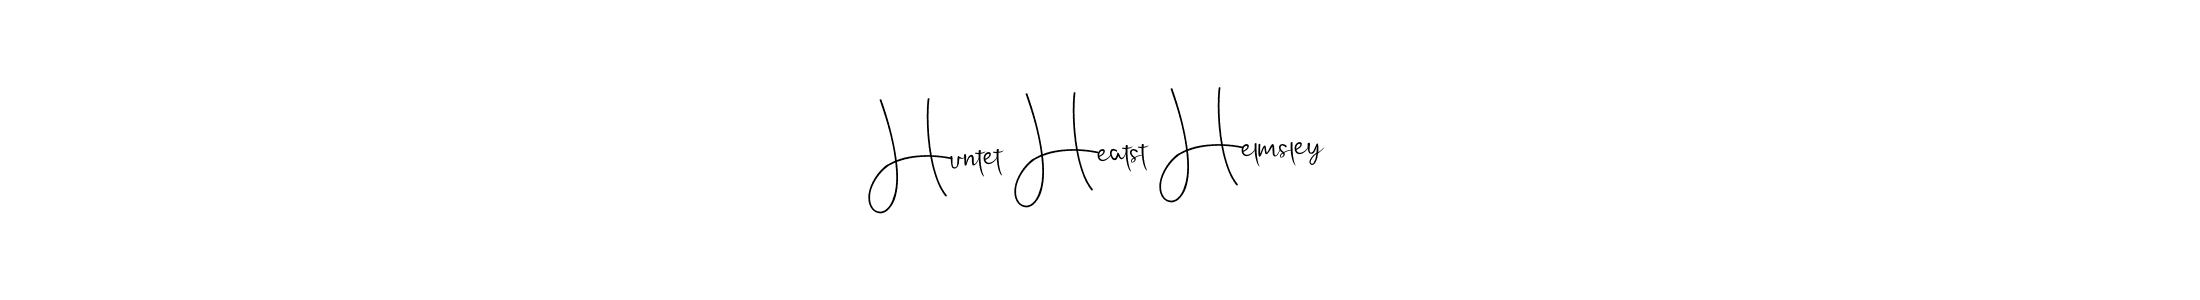 Huntet Heatst Helmsley